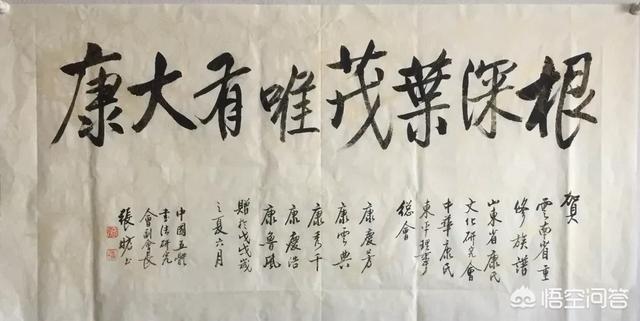 根深葉茂唯有大康
賀
雲南省重
修族譜
山東省康氏
文化研究會
中華康氏
東平理事
総會
康慶芳
康雲典
康秀千
康慶浩
康魯風
贈於戊戌歲
之夏六月
中國五體
書法研究
會副會長
張
悟空问答